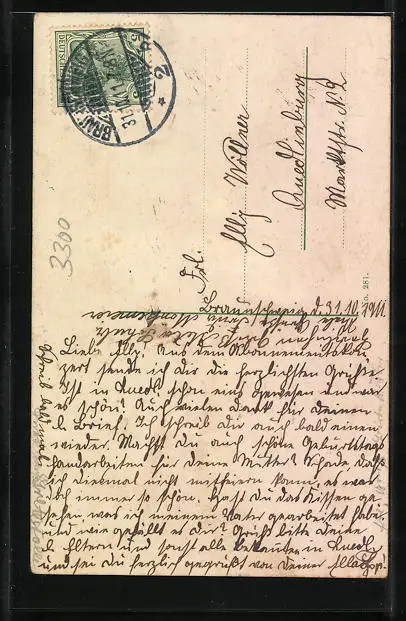 DEUTSCHES
BRAUNSCHWEIG
31.10.11.7-8N.
* 2
3300
Frl.
Elly Wöllner
Quedlinburg
Marktstr. N. 2
No. 281.
Braunschweig, d. 31.10.1911.
Liebe Elly! Aus dem Abonnementskon-
zert sende ich dir die herzlichsten Grüße.
Ist in Quedl. schon eins gewesen und war
es schön? Auch vielen Dank für deinen
l. Brief. Ich schreib dir auch bald einen
wieder. Machst du auch schöne Geburtstags
handarbeiten für deine Mutter? Schade daß
ich diesmal nicht mitfeiern kann, es war
doch immer so schön. Hast du das Kissen ge-
sehen was ich meinem Vater gearbeitet habe,
und wie gefällt es dir? Grüß bitte deine
l. Eltern und sonst alle bekannten in Quedl.
und sei du herzlich gegrüßt von deiner
Schreib bald mal